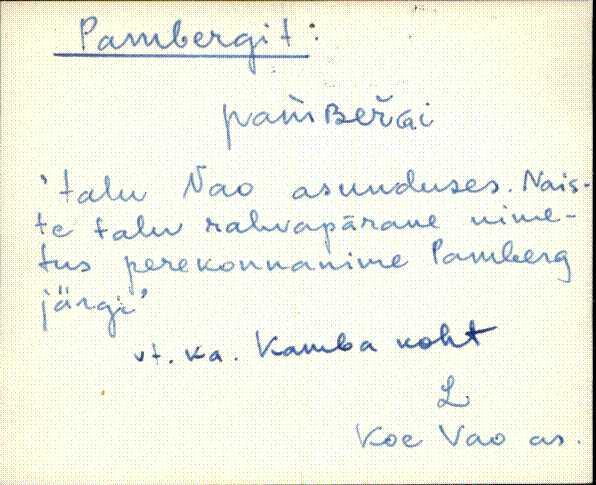 Pambergit:
pam̀Beřgi
'talu Vao asunduses. Nais-
te talu rahvapärane nime-
tus perekonnanime Pamberg
järgi'
vt. ka. Kamba koht
L
Koe Vao as.